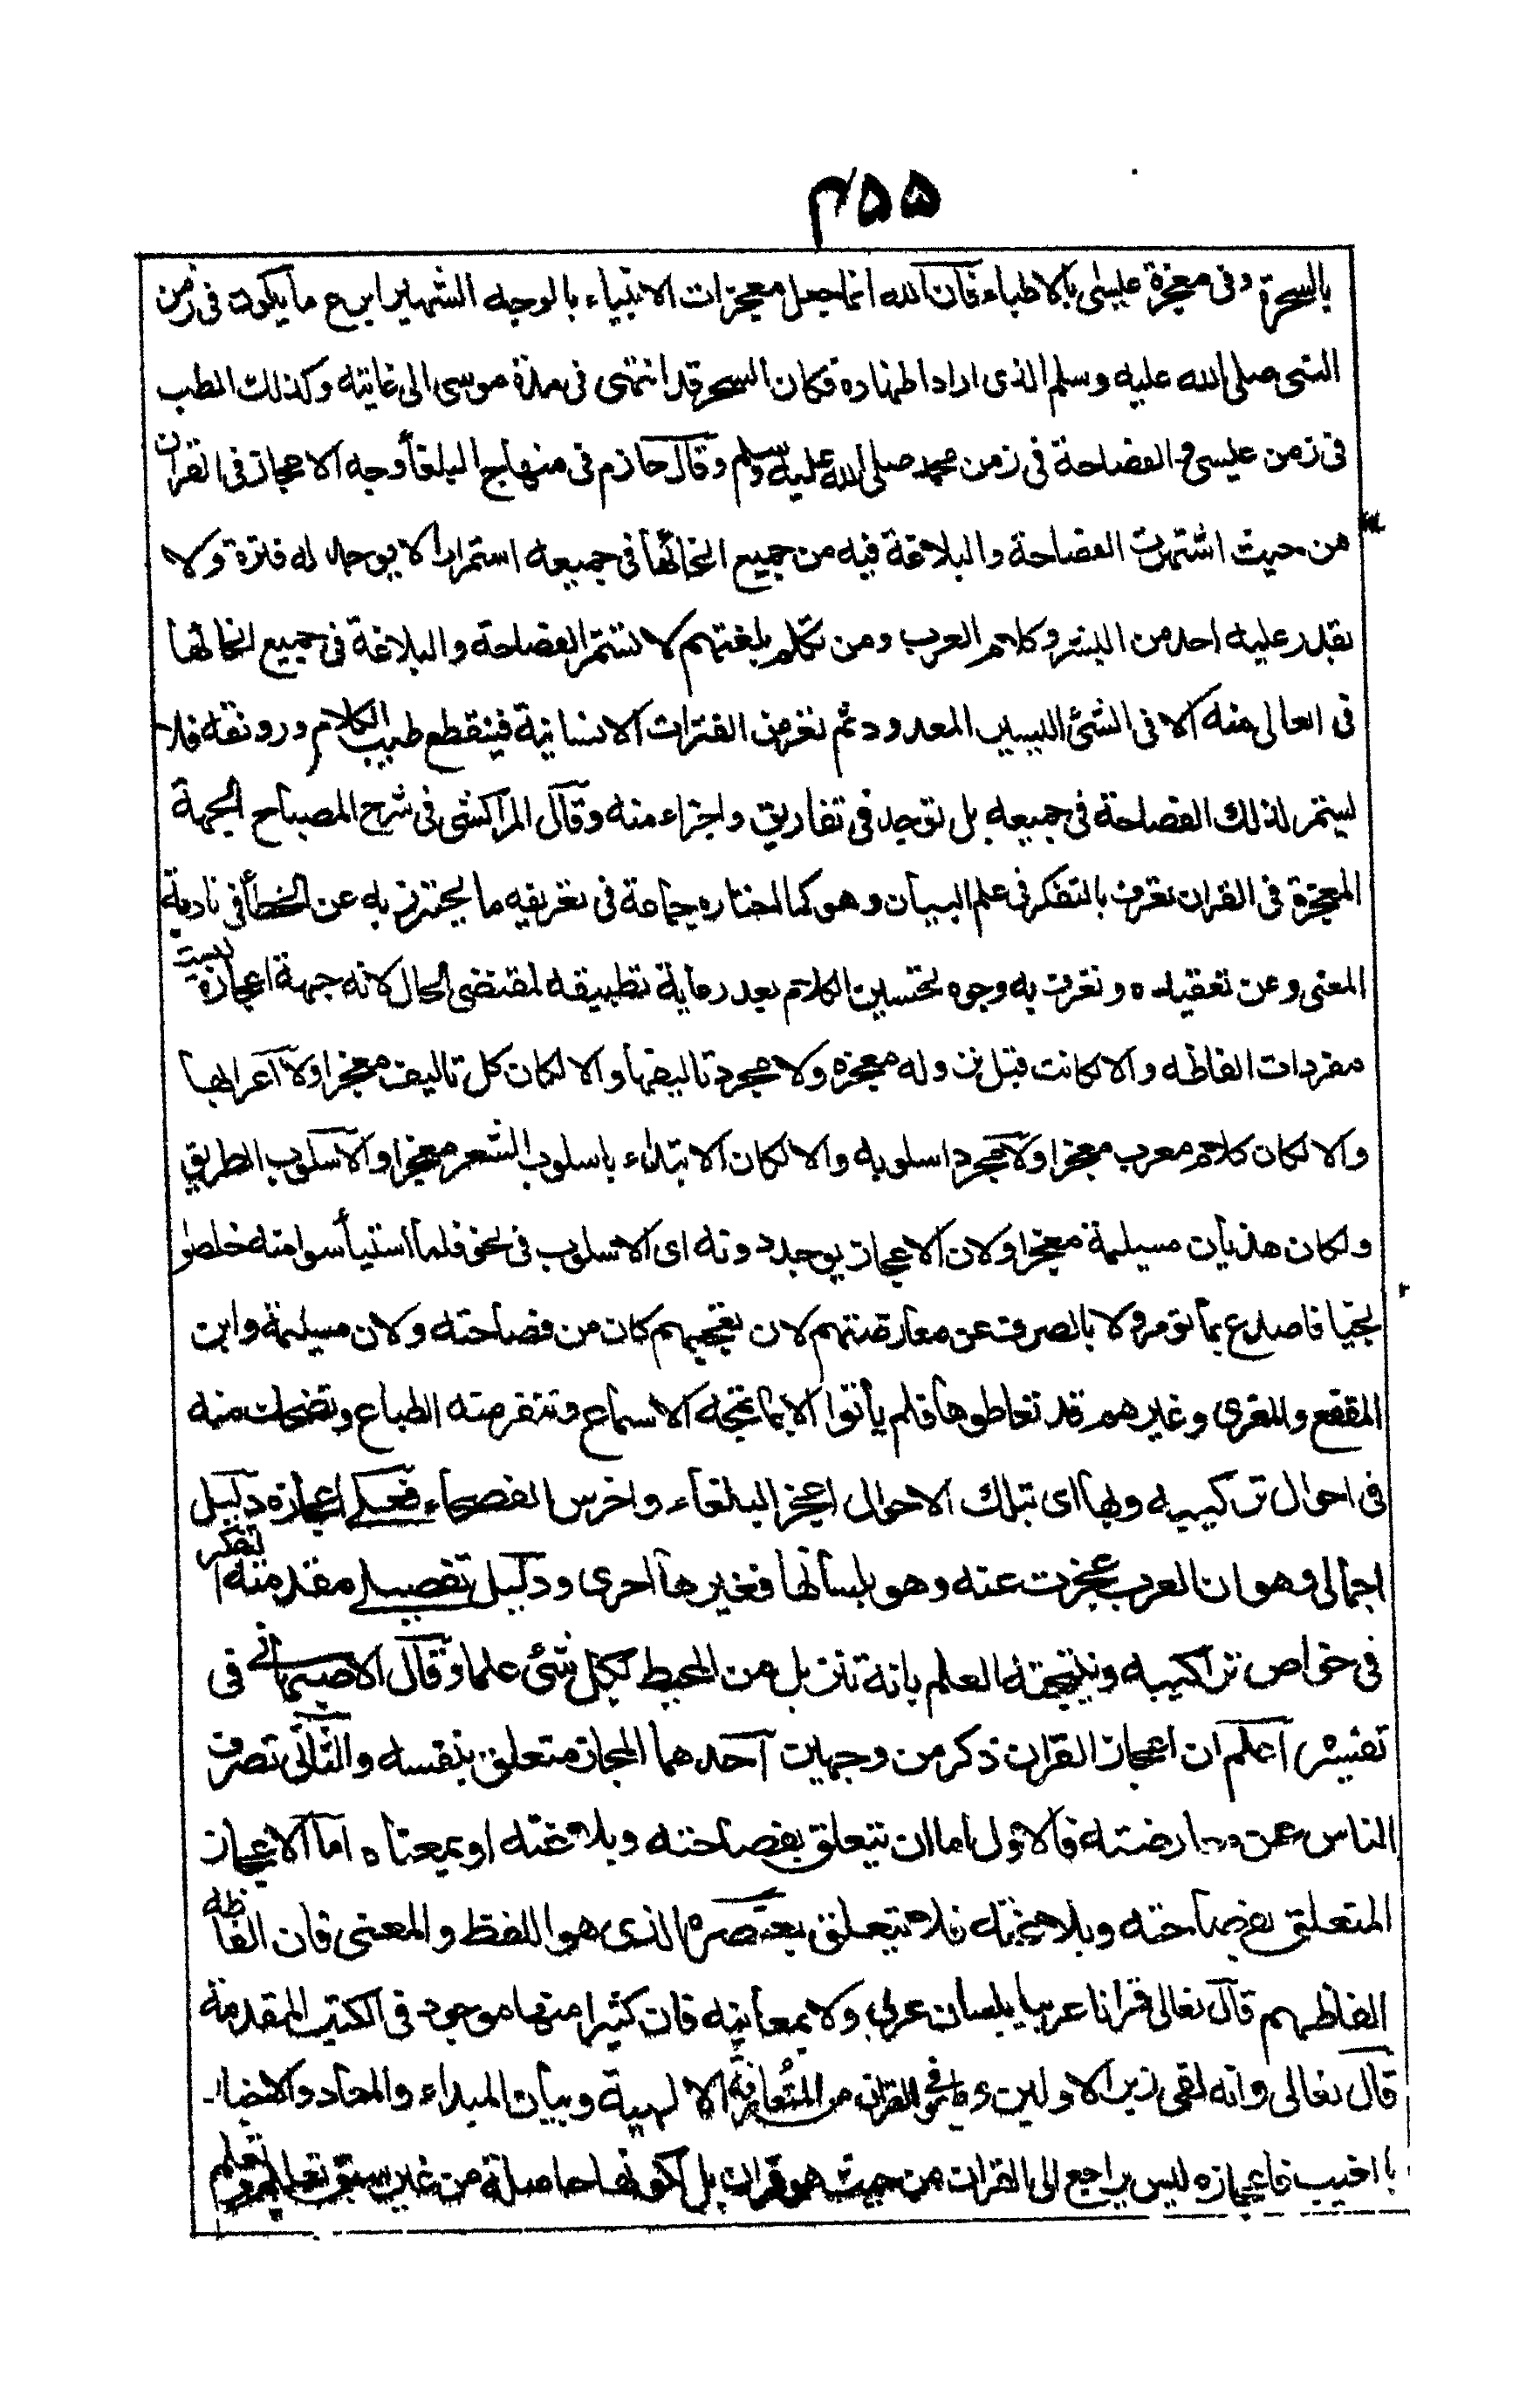 ۴۵۵
بالسحرة وفی معجزة عیسٰی بالاطباء فان الله انما جعل معجزات الانبیاء بالوجه الشهیر ابرع ما یکون فی زمن
النبی صلی الله علیه وسلم الذی اراد اظهاره فکان السحر قد انتهی فی مدة موسی الی غایته وکذلك الطب
فی زمن عیسی والفصاحة فی زمن محمد صلی الله علیه وسلم وقال حازم فی منهاج البلغأ وجه الاعجاز فی القران
من حیث اشتمرت الفصاحة والبلاغة فیه من جمیع انحائها فی جمیعه استمرارا لا یوجد له فترة ولا
یقدر علیه احد من البشر وکلام العرب ومن تکلم بلغتهم لا تستمر الفصاحة والبلاغة فی جمیع انحائها
فی العالی منه الا فی الشئ الیسیر المعدود ثم تعرض الفترات الانسانیة فینقطع طیب الکلام ورونقه فلا
یستمر لذلك الفصاحة فی جمیعه بل توجد فی تفاریق واجزاء منه وقال المراکشی فی شرح المصباح الجهة
المعجزة فی القران تعرف بالتفکر فی علم البیان وهو کما اختاره جماعة فی تعریفه ما یحترز به عن الخطأ فی تادیة
المعنی وعن تعقیده وتعرف به وجوه تحسین الکلام بعد رعایة تطبیقه لمقتضی الحال لانه جهة اعجازه لیست
مفردات الفاظه والا لکانت قبل نزوله معجزه ولا مجرد تالیفها والا لکان کل تالیف معجزا ولا اعرابها
والا لکان کلام معرب معجزا ولا مجرد اسلوبه والا لکان الابتداء باسلوب الشعر معجزا والاسلوب الطریق
ولکان هذیان مسیلمة معجزا ولان الاعجاز یوجد دونه ای الاسلوب فی نحو فلما استیأسوا منه خلصوا
نجیا فاصدع بما تؤمر ولا بالصرف عن معارضتهم لان تعجبهم کان من فصاحته ولان مسیلمة وابن
المقفع والمعری وغیرهم قد تعاطوها فلم یأتوا الا بما تمجه الاسماع وتنفر منه الطباع وتضحك منه
فی احوال ترکیبه وبها ای تبلك الاحوال اعجز البلغاء واخرس الفصحاء فعلی اعجازه دلیل
اجمالی وهو ان العرب عجزت عنه وهو بلسانها فغیرها احری ودلیل تفصیلی مقدمته التفکر
فی خواص تراکیبه ونتیجته العلم بانه تنزیل من المحیط بکل شئ علما وقال الاصبهانی فی
تفسیره اعلم ان اعجاز القران ذکر من وجهین احدهما اعجاز متعلق بنفسه والثانی تصرف
الناس عن معارضته فالاول اما ان یتعلق بفصاحته وبلاغته او بمعناه اما الاعجاز
المتعلق بفصاحته وبلاغته فلا یتعلق بعنصره الذی هو اللفظ والمعنی فان الفاظه
الفاظهم قال تعالی قرانا عربیا بلسان عربی ولا بمعانیه فان کثیرا منها موجود فی الکتب المقدمة
قال تعالی وانه لفی زبر الاولین وما فی القران من المتعارفة الالهیة وبیان المبداء والمعاد والاخبار
بالغیب فاعجازه لیس براجع الی القران من حیث هو قران بل لکونها حاصلة من غیر سبق تعلیم